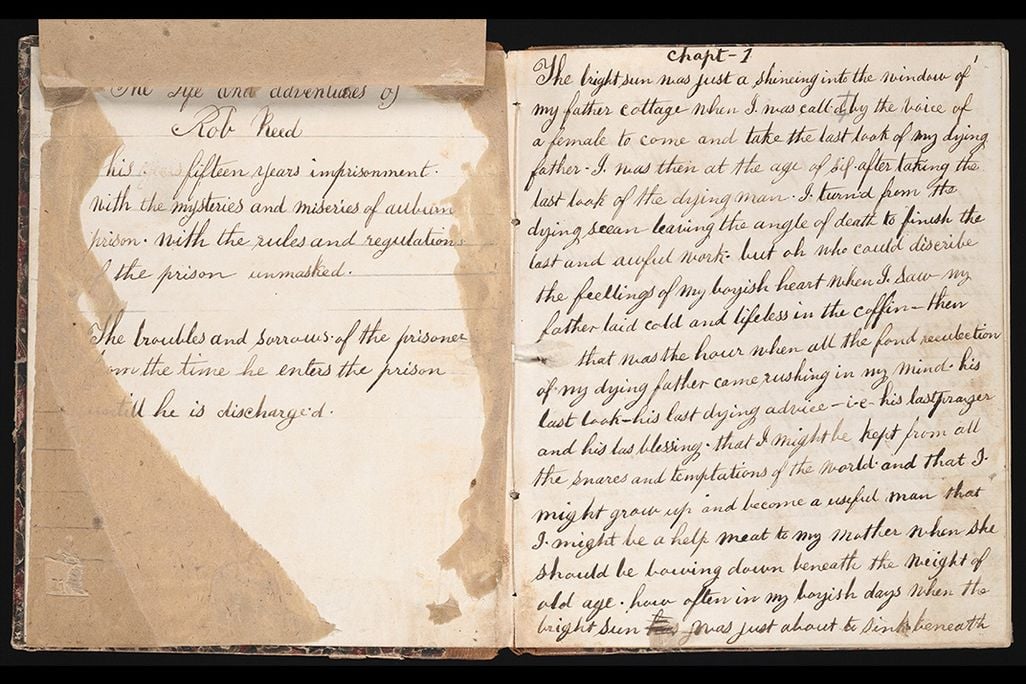 The Life and adventures of
Rob Reed
his fifteen years imprisonment.
With the mysteries and miseries of auburn
prison. with the rules and regulations
of the prison unmasked.
The troubles and sorrows of the prisoner
from the time he enters the prison
untill he is discharged.
Chapt-1
The bright sun was just a shineing into the window of
my father cottage when I was calld by the voice of
a female to come and take the last look of my dying
father. I was then at the age of six. after taking the
last look of the dying man. I turn'd from the
dying seean leaving the angle of death to finish the
last and awful work. but oh who could discribe
the feellings of my boyish heart when I saw my
father laid cold and lifeless in the coffin – then
that was the hour when all the fond reculection
of my dying father came rushing in my mind. his
last look – his last dying advice – i-e- his last prayer
and his las blessing. that I might be kept from all
the snares and temptations of the world and that I.
might grow up and become a useful man that
I. might be a help meat to my mother when she
should be bowing down beneath the weight of
old age. how often in my boyish days when the
bright sun was just about to sink beneath